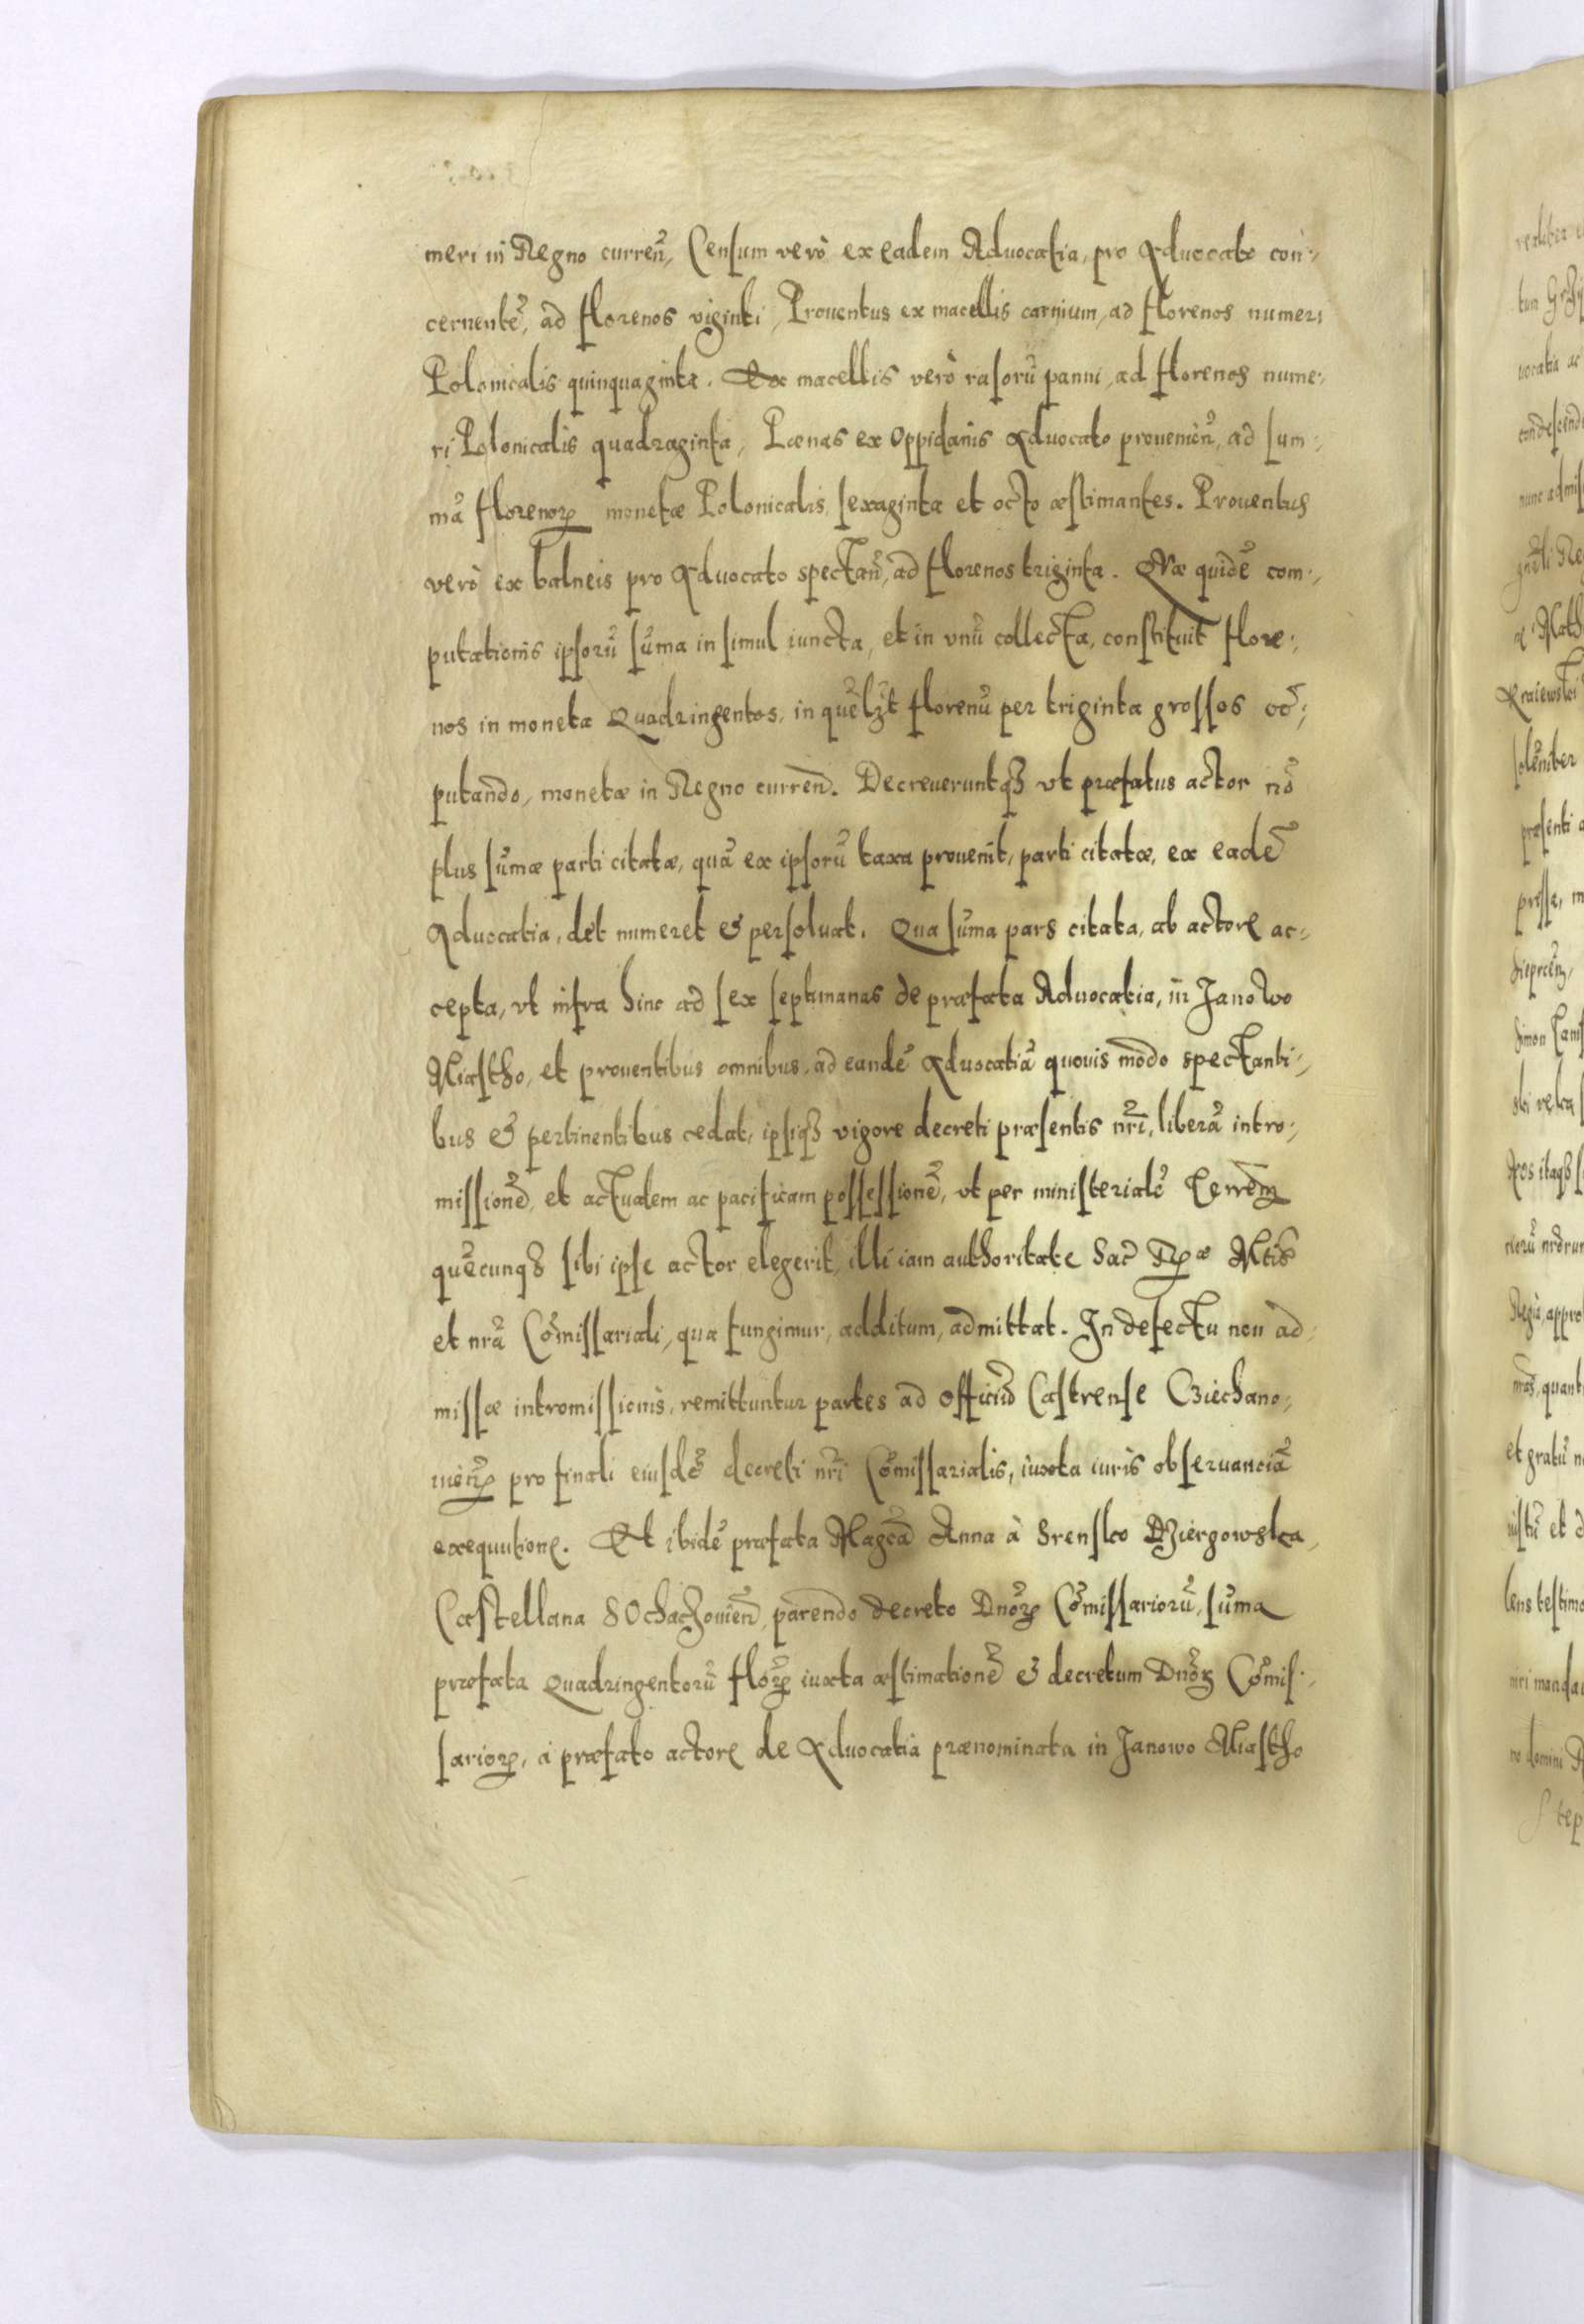 meri in Regno curreñ, Censum verò ex eadem Aduocatia, pro Aduocato con-
cernentẽ, ad florenos viginti, Prouentus ex macellis carnium, ad florenos numeri
Polonicalis quinquaginta. Ex macellis verò rasorũ panni, ad florenos nume-
ri Polonicalis quadraginta, Pœnas ex Oppidanis Aduocato prouenieñ, ad sum-
mã florenoꝝ monetæ Polonicalis, sexaginta et octo æstimantes. Prouentus
verò ex balneis pro Aduocato spectañ, ad florenos triginta. Quæ quidẽ com-
putationis ipsorũ sũma in simul iuncta, et in vnũ collecta, constituit flore-
nos in moneta Quadringentos, in quẽlꝫt florenũ per triginta grossos cõ-
putando, monetæ in Regno curreñ. Decreueruntqꝫ vt præfatus actor nõ
plus sũmæ parti citatæ, quã ex ipsorũ taxa prouenit, parti citatæ, ex eadẽ
Aduocatia, det numeret & persoluat. Qua sũma pars citata, ab actore ac-
cepta, vt infra hinc ad sex septimanas de præfata Aduocatia, in Janowo
Miastho, et prouentibus omnibus, ad eandẽ Aduocatiã quouis modo spectanti-
bus & pertinentibus cedat, ipsiqꝫ vigore decreti præsentis nr̃i, liberã intro-
missionẽ, et actualem ac pacificam possessionẽ, vt per ministerialẽ Terrẽm
quẽcunqꝫ sibi ipse actor elegerit, illi iam authoritate Sac̃ Rꝫæ Mtis
et nrã Cõmissariali, qua fungimur, additum, admittat. In defectu non ad-
missæ intromissionis, remittuntur partes ad officiũ Castrense Cziechano-
uieñ, pro finali eiusdẽ decreti nr̃i Cõmissarialis, iuxta iuris obseruanciã
exequutione. Et ibidẽ præfata Magcã Anna à Srensko Dziergowska,
Castellana SOchaczouieñ, parendo decreto Dnõꝝ Cõmissariorũ, sũma
præfata Quadringentorũ floꝝ iuxta æstimationẽ & decretum Dnõꝝ Cõmis-
sarioꝝ, à præfato actore de Aduocatia prænominata in Janowo Miastho